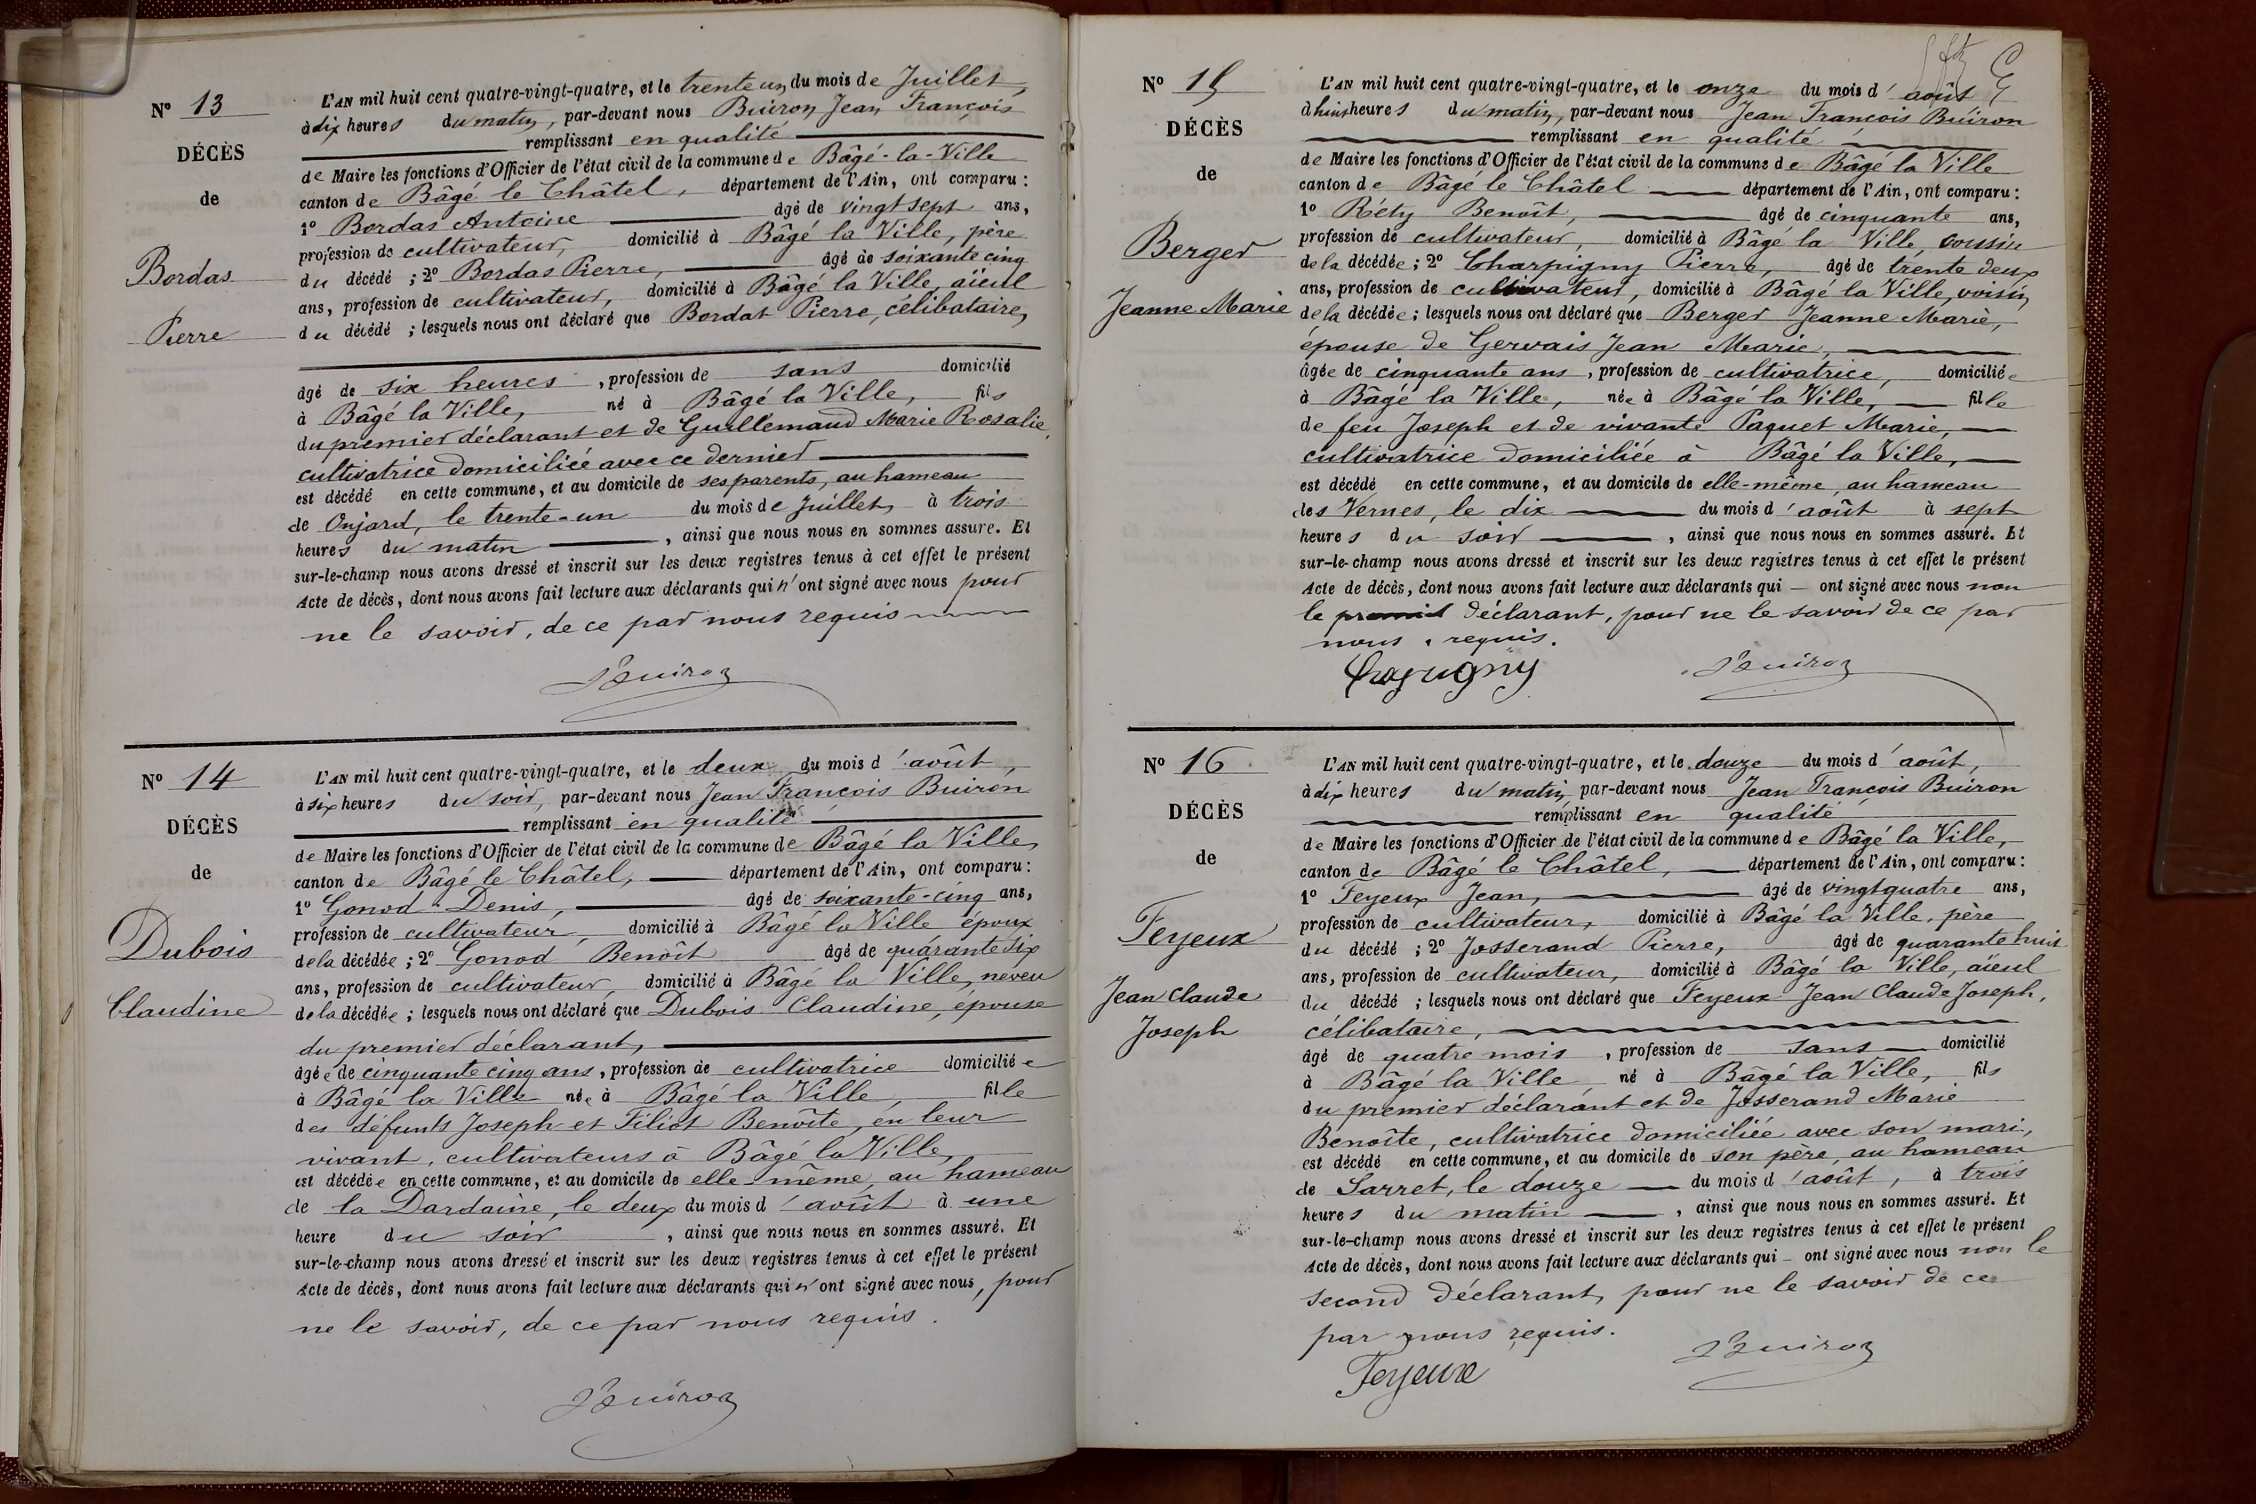 N° 13
DÉCÈS
de
Bordas
Pierre
L'AN mil huit cent quatre-vingt-quatre, et le trente un du mois de Juillet,
à dix heures du matin, par-devant nous Buiron Jean François
remplissant en qualité
de Maire les fonctions d'Officier de l'état civil de la commune de Bâgé-la-Ville
canton de Bâgé le Châtel, département de l'Ain, ont comparu :
1° Bordas Antoine âgé de vingt sept ans,
profession de cultivateur, domicilié à Bâgé la Ville, père
du décédé ; 2° Bordas Pierre, âgé de soixante cinq
ans, profession de cultivateur, domicilié à Bâgé la Ville, aïeul
du décédé ; lesquels nous ont déclaré que Bordas Pierre, célibataire,
âgé de six heures, profession de sans domicilié
à Bâgé la Ville, né à Bâgé la Ville, fils
du premier déclarant et de Guillemaud Marie Rosalie,
cultivatrice domiciliée avec ce dernier
est décédé en cette commune, et au domicile de ses parents, au hameau
de Onjard, le trente-un du mois de Juillet, à trois
heures du matin, ainsi que nous nous en sommes assuré. Et
sur-le-champ nous avons dressé et inscrit sur les deux registres tenus à cet effet le présent
Acte de décès, dont nous avons fait lecture aux déclarants qui n'ont signé avec nous pour
ne le savoir, de ce par nous requis
Buiron
N° 14
DÉCÈS
de
Dubois
Claudine
L'AN mil huit cent quatre-vingt-quatre, et le deux du mois d'août,
à six heures du soir, par-devant nous Jean François Buiron
remplissant en qualité
de Maire les fonctions d'Officier de l'état civil de la commune de Bâgé la Ville,
canton de Bâgé le Châtel, département de l'Ain, ont comparu :
1° Gonod Denis, âgé de soixante-cinq ans,
profession de cultivateur, domicilié à Bâgé la Ville époux
de la décédée ; 2° Gonod Benoît âgé de quarante six
ans, profession de cultivateur, domicilié à Bâgé la Ville, neveu
de la décédée ; lesquels nous ont déclaré que Dubois Claudine, épouse
du premier déclarant,
âgée de cinquante cinq ans, profession de cultivatrice domiciliée
à Bâgé la Ville née à Bâgé la Ville, fille
des défunts Joseph et Filiot Benoîte, en leur
vivant, cultivateurs à Bâgé la Ville,
est décédée en cette commune, et au domicile de elle-même, au hameau
de la Dardaine, le deux du mois d'août à une
heure du soir, ainsi que nous nous en sommes assuré. Et
sur-le-champ nous avons dressé et inscrit sur les deux registres tenus à cet effet le présent
Acte de décès, dont nous avons fait lecture aux déclarants qui n'ont signé avec nous, pour
ne le savoir, de ce par nous requis.
Buiron
N° 15
DÉCÈS
de
Berger
Jeanne Marie
L'AN mil huit cent quatre-vingt-quatre, et le onze du mois d'août
à huit heures du matin, par-devant nous Jean François Buiron
remplissant en qualité
de Maire les fonctions d'Officier de l'état civil de la commune de Bâgé la Ville
canton de Bâgé le Châtel département de l'Ain, ont comparu :
1° Réty Benoît, âgé de cinquante ans,
profession de cultivateur, domicilié à Bâgé la Ville, cousin
de la décédée ; 2° Charpigny Pierre, âgé de trente deux
ans, profession de cultivateur, domicilié à Bâgé la Ville, voisin
de la décédée ; lesquels nous ont déclaré que Berger Jeanne Marie,
épouse de Gervais Jean Marie,
âgée de cinquante ans, profession de cultivatrice, domiciliée
à Bâgé la Ville, née à Bâgé la Ville, fille
de feu Joseph et de vivante Paquet Marie,
cultivatrice domiciliée à Bâgé la Ville,
est décédé en cette commune, et au domicile de elle-même, au hameau
des Vernes, le dix du mois d'août à sept
heures du soir, ainsi que nous nous en sommes assuré. Et
sur-le-champ nous avons dressé et inscrit sur les deux registres tenus à cet effet le présent
Acte de décès, dont nous avons fait lecture aux déclarants qui ont signé avec nous non
le premier déclarant, pour ne le savoir de ce par
nous requis.
Charpigny Buiron
N° 16
DÉCÈS
de
Feyeux
Jean Claude
Joseph
L'AN mil huit cent quatre-vingt-quatre, et le douze du mois d'août,
à dix heures du matin par-devant nous Jean François Buiron
remplissant en qualité
de Maire les fonctions d'Officier de l'état civil de la commune de Bâgé la Ville,
canton de Bâgé le Châtel, département de l'Ain, ont comparu :
1° Feyeux Jean, âgé de vingt quatre ans,
profession de cultivateur, domicilié à Bâgé la Ville, père
du décédé ; 2° Josserand Pierre, âgé de quarante huit
ans, profession de cultivateur, domicilié à Bâgé la Ville, aïeul
du décédé ; lesquels nous ont déclaré que Feyeux Jean Claude Joseph,
célibataire,
âgé de quatre mois, profession de sans domicilié
à Bâgé la Ville né à Bâgé la Ville, fils
du premier déclarant et de Josserand Marie
Benoîte, cultivatrice domiciliée avec son mari,
est décédé en cette commune, et au domicile de son père, au hameau
de Sarret, le douze du mois d'août, à trois
heures du matin, ainsi que nous nous en sommes assuré. Et
sur-le-champ nous avons dressé et inscrit sur les deux registres tenus à cet effet le présent
Acte de décès, dont nous avons fait lecture aux déclarants qui ont signé avec nous non le
second déclarant, pour ne le savoir de ce
par nous requis.
Feyeux Buiron